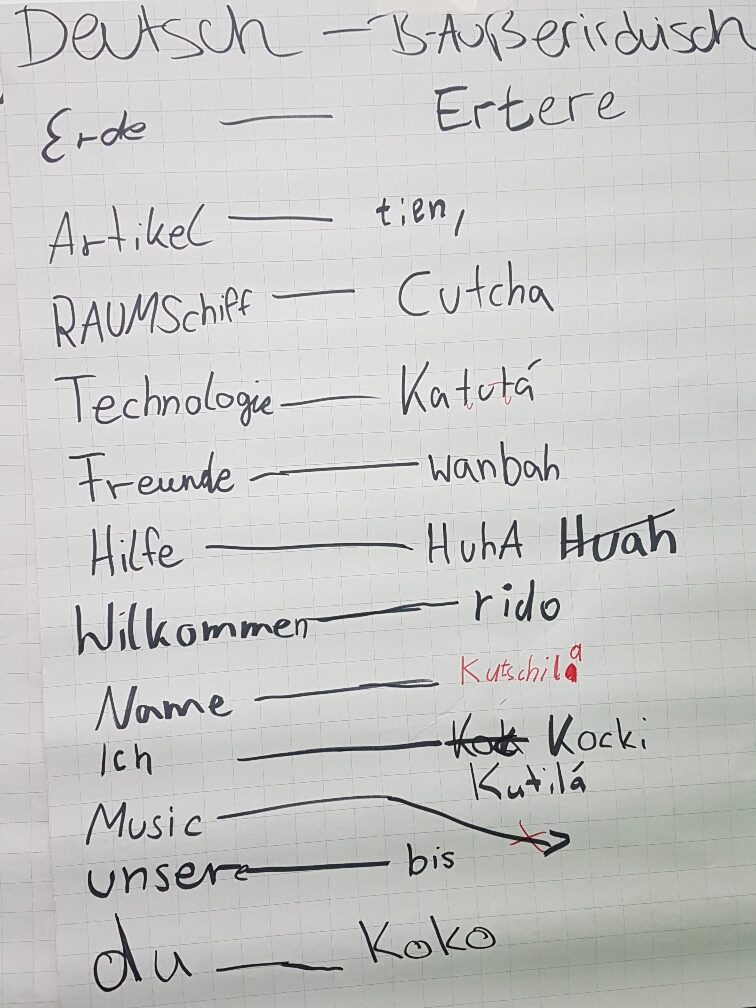 Deutsch — B-Außerirduisch
Erde — Ertere
Artikel — tien,
RAUMSchiff — Cutcha
Technologie — Katutá
Freunde — wanbah
Hilfe — HuhA Huah
Wilkommen — rido
Name — Kutschila
Ich — Kok Kocki
Kutilá
Music
unsere — bis
du — Koko